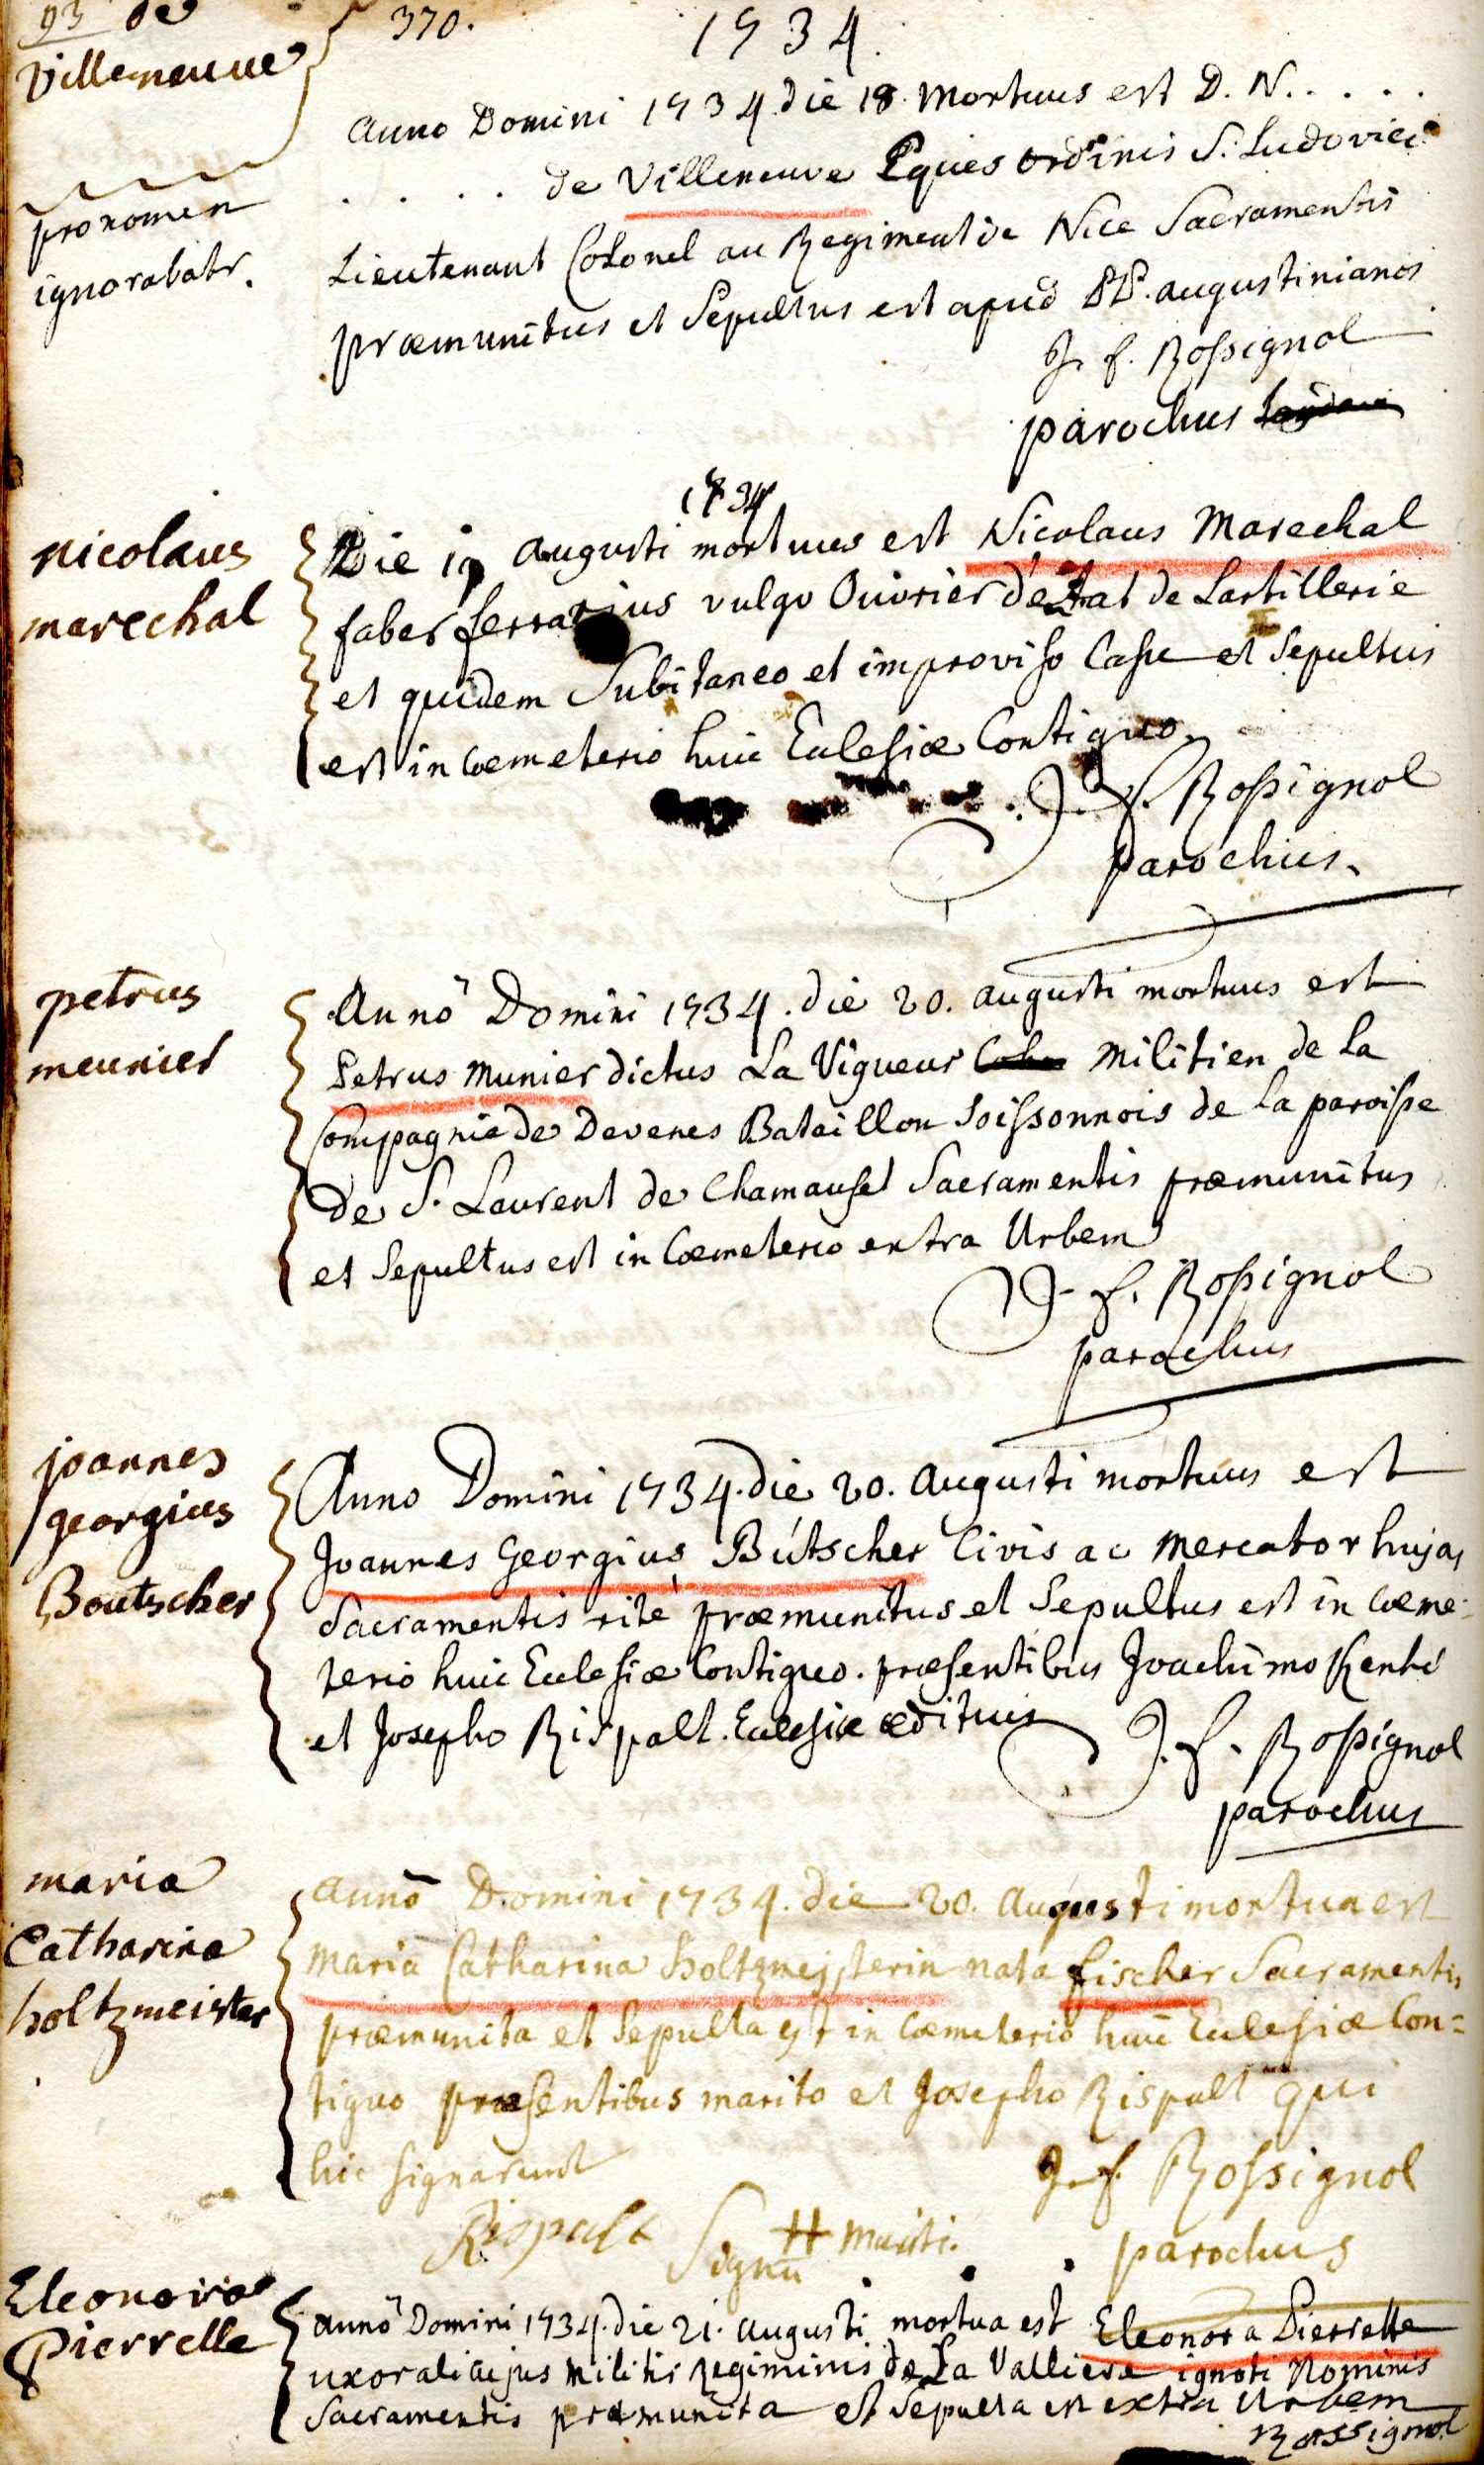 93 de
Villeneuve
pronomen
ignorabatr.
370.
1734.
Anno Domini 1734. die 18. Mortuus est D. N. . . . .
. . . . de Villeneuve Eques ordinis S. Ludovici
Lieutenant Colonel au Regiment de Nice Sacramentis
præmunitus et Sepultus est apud PP. augustinianos
J. f. Rossignol
parochus
nicolaus
marechal
1734
Die 19 augusti mortuus est Nicolaus Marechal
faber ferrarius vulgo Ouvrier d'Etat de Lartillerie
et quidem Subitaneo et improviso Casu et Sepultus
est in Coemeterio huic Ecclesiæ Contiguo.
J. f. Rossignol
parochus.
petrus
meunier
Anno Domini 1734. die 20. augusti mortuus est
Petrus Munier dictus La Vigueur militien de la
Compagnie de Devenes Bataillon Soissonnois de la paroisse
de S. Laurent de Chamauset Sacramentis præmunitus
et Sepultus est in Coemeterio extra Urbem
J. f. Rossignol
parochus
joannes
georgius
Boutscher
Anno Domini 1734. die 20. augusti mortuus est
Joannes Georgius Bútscher Civis ac Mercator hujas
Sacramentis rite præmunitus et Sepultus est in Coeme-
terio huic Ecclesiæ Contiguo. præsentibus Joachimo
et Josepho Rispalt. Ecclesiæ ædituis
J. f. Rossignol
parochus
maria
Catharina
holtzmeister
anno Domini 1734. die 20. augusti mortua est
Maria Catharina holtzmeisterin nata fischer Sacramentis
præmunita et Sepulta est in Coemeterio huic Ecclesiæ Con=
tiguo præsentibus marito et Josepho Rispalt qui
hic signarunt
J. f. Rossignol
Rispalt Signū H Mariti.
parochus
Eleonora
Pierrelle
anno Domini 1734. die 21. augusti mortua est Eleonora Pierrette
uxor alicujus Militis Regiminis de La Valliere ignoti Nominis
Sacramentis præmunita et Sepulta est extra Urbem
Rossignol